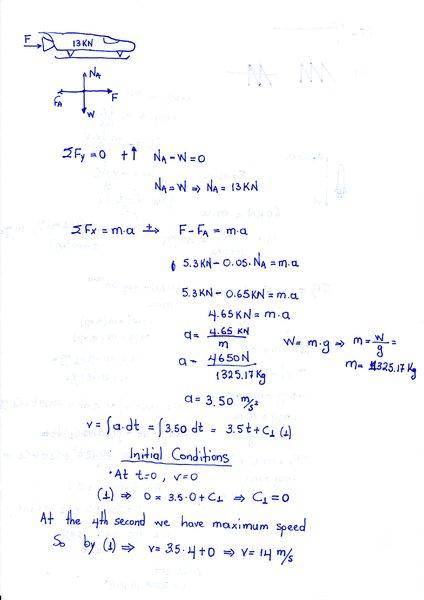 F
13KN
NA
FA F
W
ΣFy=0 +↑ NA-W=0
NA=W ⇒ NA=13KN
ΣFx=m.a ± F-FA=m.a
5.3KN-0.05.NA=m.a
5.3KN-0.65KN=m.a
4.65KN=m.a
a= 4.65 KN / m W=m.g ⇒ m= W/g =
a= 4650N / 1325.17Kg m=1325.17Kg
a=3.50 m/s²
v=∫a.dt =∫3.50 dt = 3.5t+C1 (1)
Initial Conditions
•At t=0, v=0
(1) ⇒ 0=3.5.0+C1 ⇒ C1=0
At the 4th second we have maximum speed
So by (1) ⇒ v=3.5.4+0 ⇒ v=14 m/s